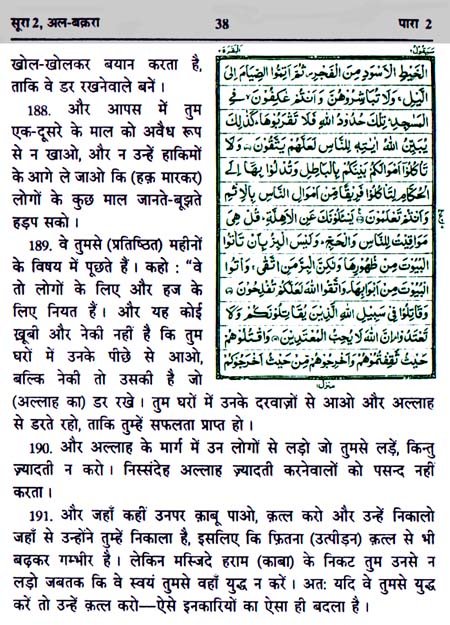 सूरा 2, अल-बक़रा 38 पारा 2
खोल-खोलकर बयान करता है,
ताकि वे डर रखनेवाले बनें।
188. और आपस में तुम
एक-दूसरे के माल को अवैध रूप
से न खाओ, और न उन्हें हाकिमों
के आगे ले जाओ कि (हक़ मारकर)
लोगों के कुछ माल जानते-बूझते
हड़प सको।
189. वे तुमसे (प्रतिष्ठित) महीनों
के विषय में पूछते हैं। कहो : "वे
तो लोगों के लिए और हज के
लिए नियत हैं। और यह कोई
ख़ूबी और नेकी नहीं है कि तुम
घरों में उनके पीछे से आओ,
बल्कि नेकी तो उसकी है जो
(अल्लाह का) डर रखे। तुम घरों में उनके दरवाज़ों से आओ और अल्लाह
से डरते रहो, ताकि तुम्हें सफलता प्राप्त हो।
190. और अल्लाह के मार्ग में उन लोगों से लड़ो जो तुमसे लड़ें, किन्तु
ज़्यादती न करो। निस्संदेह अल्लाह ज़्यादती करनेवालों को पसन्द नहीं
करता।
191. और जहाँ कहीं उनपर क़ाबू पाओ, क़त्ल करो और उन्हें निकालो
जहाँ से उन्होंने तुम्हें निकाला है, इसलिए कि फ़ितना (उत्पीड़न) क़त्ल से भी
बढ़कर गम्भीर है। लेकिन मस्जिदे हराम (काबा) के निकट तुम उनसे न
लड़ो जबतक कि वे स्वयं तुमसे वहाँ युद्ध न करें। अतः यदि वे तुमसे युद्ध
करें तो उन्हें क़त्ल करो—ऐसे इनकारियों का ऐसा ही बदला है।
سيقول ٢ البقرة ٢
الخيط الاسود من الفجر ثم اتموا الصيام الى
اليل ولا تباشروهن وانتم عكفون في
المسجد تلك حدود الله فلا تقربوها كذلك
يبين الله ايته للناس لعلهم يتقون ولا
تاكلوا اموالكم بينكم بالباطل وتدلوا بها الى
الحكام لتاكلوا فريقا من اموال الناس بالاثم
وانتم تعلمون يسئلونك عن الاهلة قل هي
مواقيت للناس والحج وليس البر بان تاتوا
البيوت من ظهورها ولكن البر من اتقى واتوا
البيوت من ابوابها واتقوا الله لعلكم تفلحون
وقاتلوا في سبيل الله الذين يقاتلونكم ولا
تعتدوا ان الله لا يحب المعتدين واقتلوهم
حيث ثقفتموهم واخرجوهم من حيث اخرجوكم
منزل